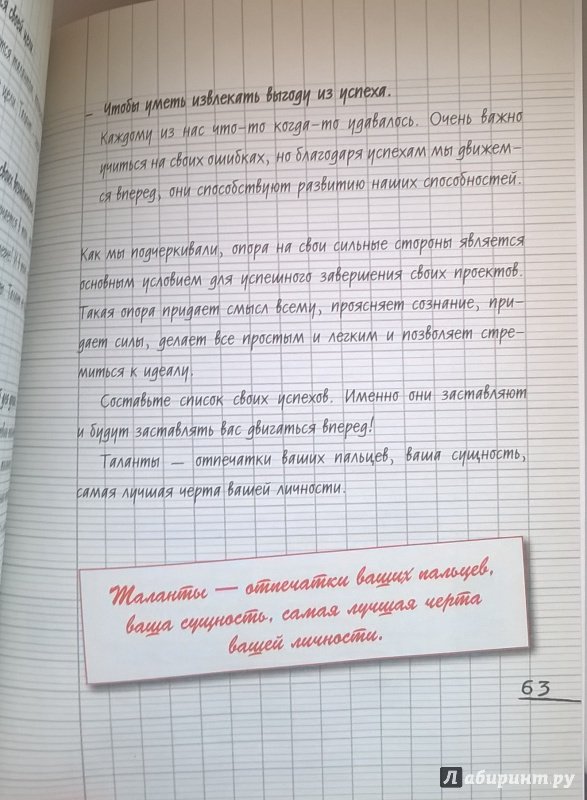 – Чтобы уметь извлекать выгоду из успеха.
Каждому из нас что-то когда-то удавалось. Очень важно
учиться на своих ошибках, но благодаря успехам мы движем-
ся вперед, они способствуют развитию наших способностей.
Как мы подчеркивали, опора на свои сильные стороны является
основным условием для успешного завершения своих проектов.
Такая опора придает смысл всему, проясняет сознание, при-
дает силы, делает все простым и легким и позволяет стре-
миться к идеалу.
Составьте список своих успехов. Именно они заставляют
и будут заставлять вас двигаться вперед!
Таланты — отпечатки ваших пальцев, ваша сущность,
самая лучшая черта вашей личности.
Таланты — отпечатки ваших пальцев,
ваша сущность, самая лучшая черта
вашей личности.
63
Лабиринт.ру